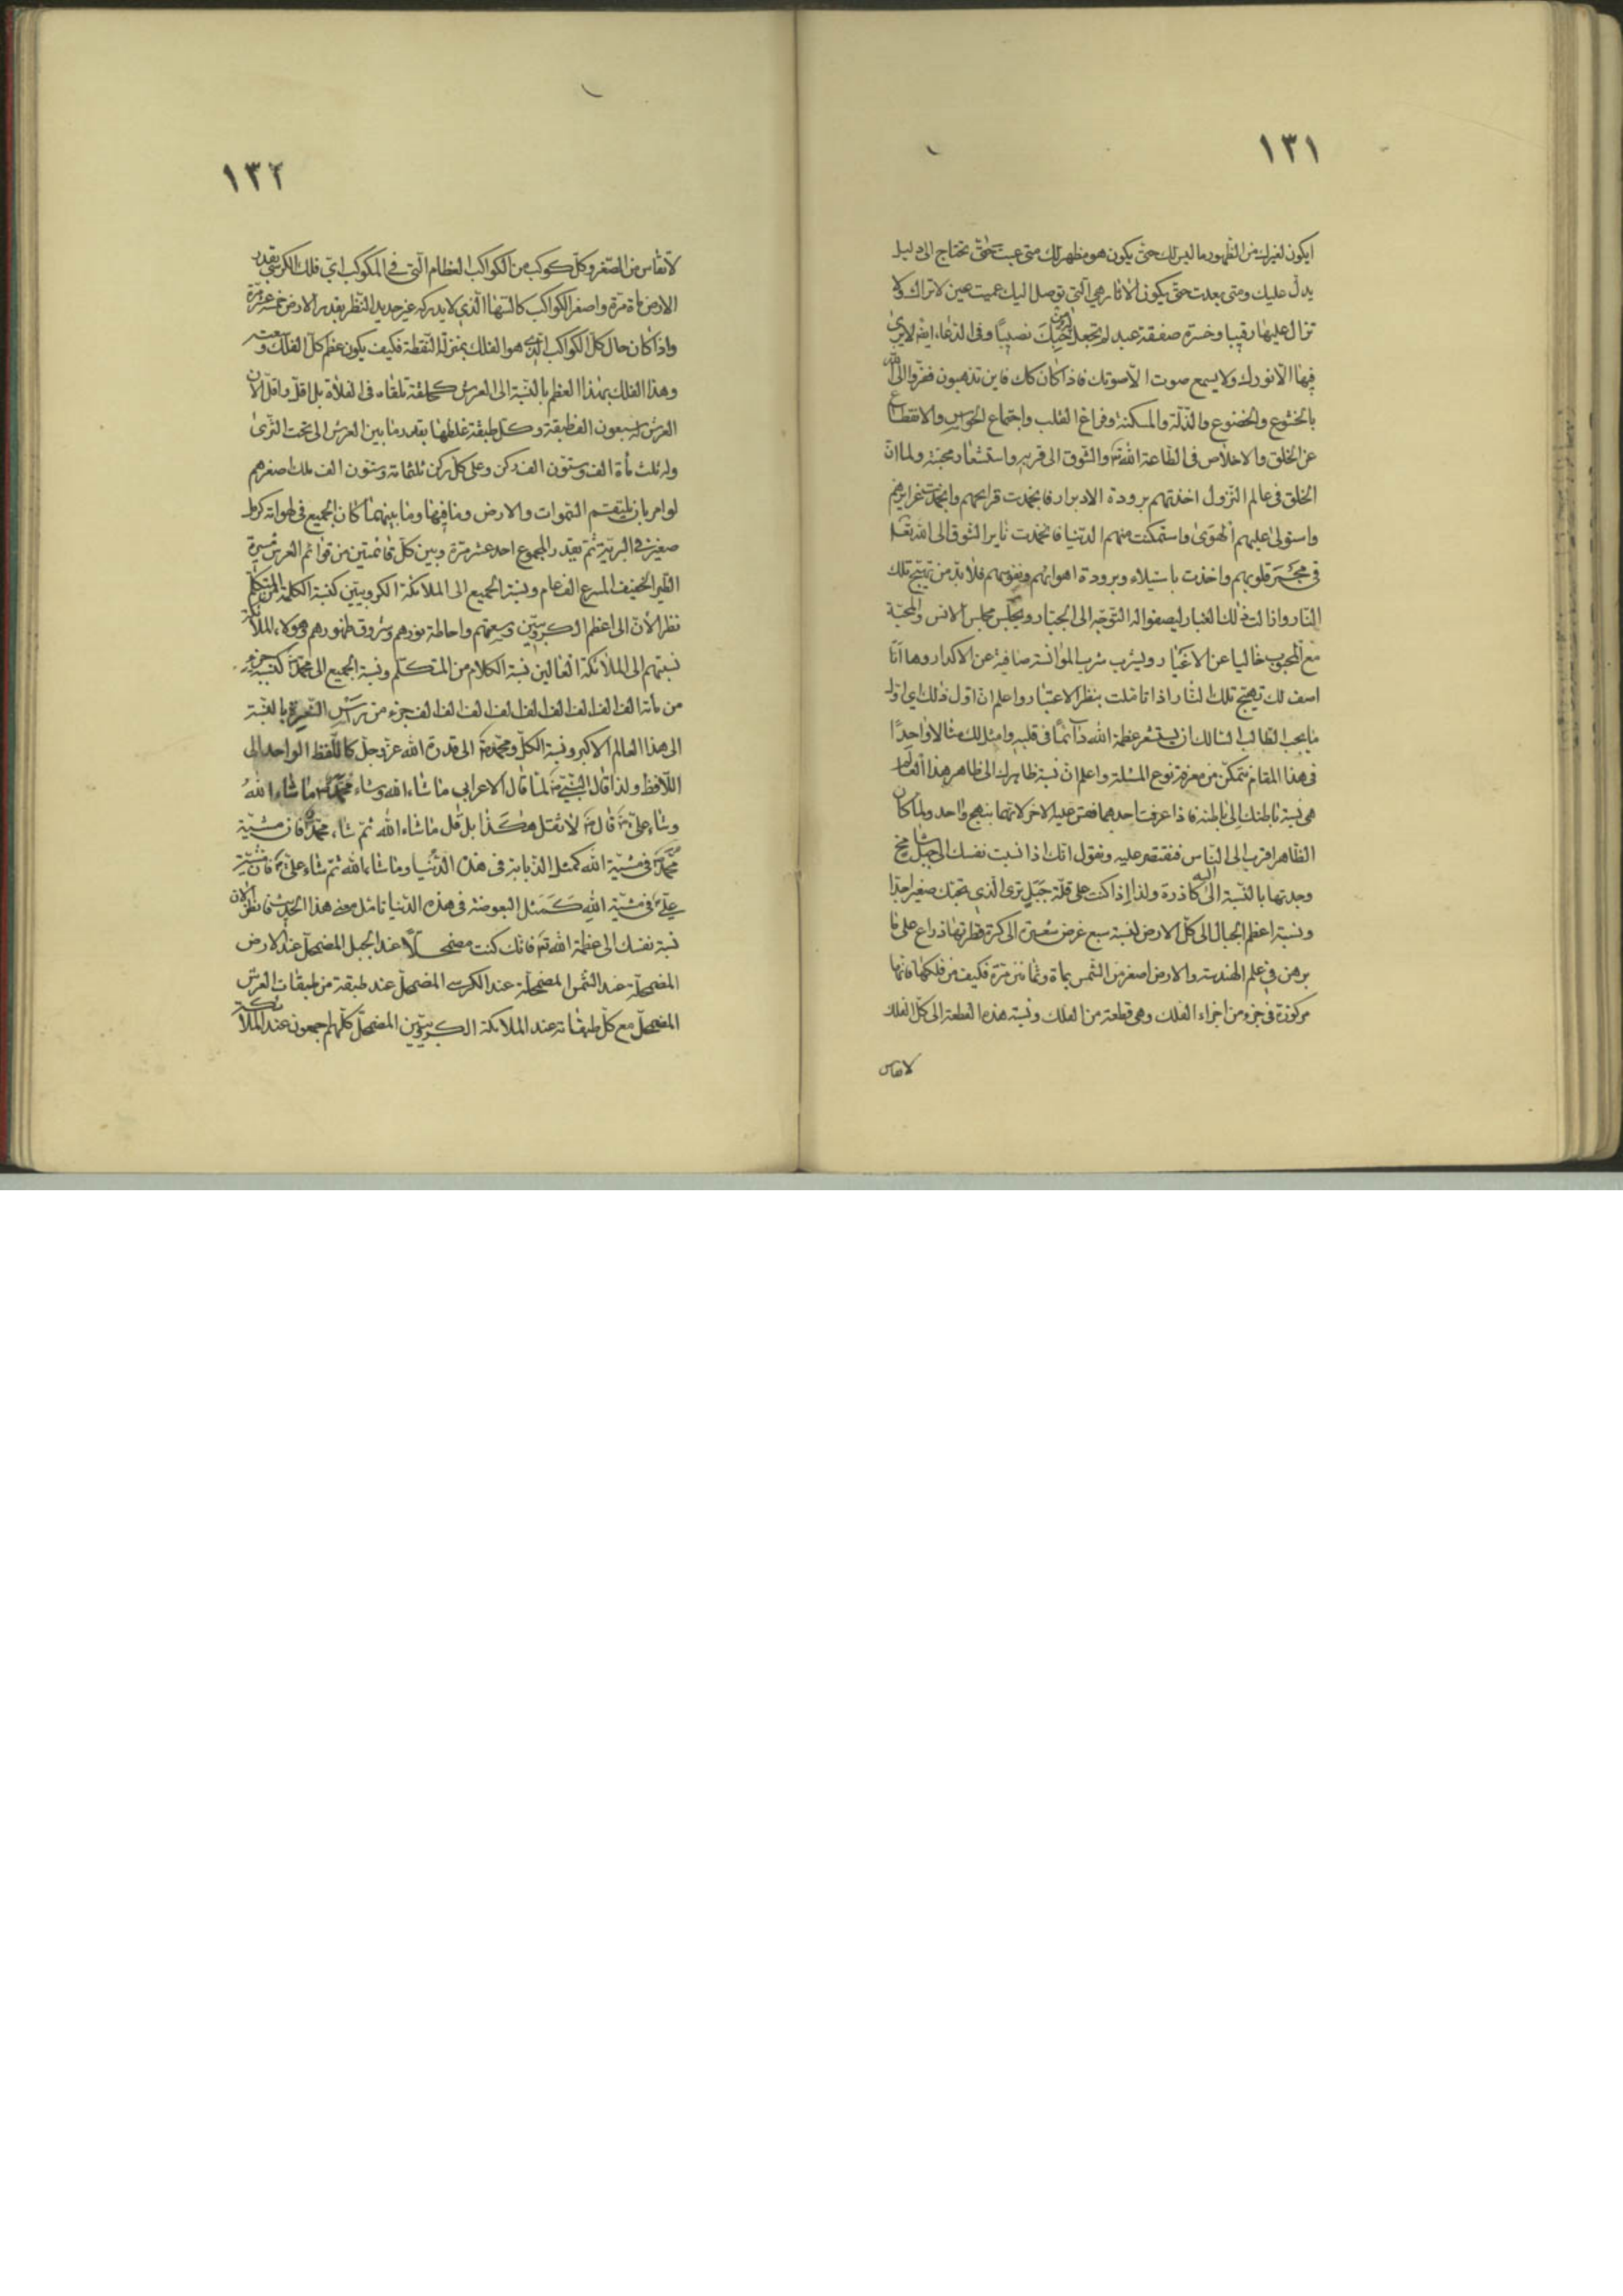 ١٣١
ايكون لغيرك من الظهور ما ليس لك حتى يكون هو مظهر لك متى غبت حتى تحتاج الى دليل
يدل عليك ومتى بعدت حتى يكون الاثار هي التي توصل اليك عميت عين لا تراك ولا
تزال عليها رقيبا وخسرت صفقة عبد لم تجعل له من حبك نصيبًا وفي الدعاء ايضا لا يرى
فيها الا نورك ولا يسمع صوت الا صوتك فاذا كان كك فاين تذهبون ففروا الى الله
بالخشوع والخضوع والذلة والمسكنة وفراغ القلب واجتماع الحواس والانقطاع
عن الخلق والاخلاص في الطاعة لله تع والشوق الى قربه واستشعار محبته ولما ان
الخلق في عالم النزول اخذتهم برودة الادبار فانجمدت قرايحهم وانجمدت غرايزهم
واستولى عليهم الهوى واستمكنت منهم الدنيا فانخمدت نايرة الشوق الى الله تعالى
في مجمر قلوبهم واخذت باستيلاء وبرودة اهوائهم ونفوسهم فلا بد من تهيج تلك
النار وازالت ذلك الغبار ليصفو له التوجه الى الجبار ويجلس مجلس الانس والمحبة
مع المحبوب خاليا عن الاغيار ويشرب شرب الموانسة صافية عن الاكدار وها انا
اصف لك تهيج تلك النار اذا تاملت بنظر الاعتبار واعلم ان اول ذلك اي اول
ما يجب الطالب السالك ان يستشعر عظمة الله دائمًا في قلبه وامثل لك مثالا واحدًا
في هذا المقام تتمكن من معرفة نوع المسئلة واعلم ان نسبة ظاهرك الى ظاهر هذا العالم
هي نسبة باطنك الى باطنه فاذا عرفت احدهما فقس عليه الاخر لانهما بنهج واحد ولما كان
الظاهر اقرب الى الناس فنقتصر عليه ونقول انك اذا نسبت نفسك الى جبل شامخ
وجدتها بالنسبة اليه كالذرة ولذا اذا كنت على قلة جبل ترى الذي تحتك صغيرا جدا
ونسبة اعظم الجبال الى كل الارض كنسبة سبع عرض شعيرة الى كرة قطرها ذراع على ما
برهن في علم الهندسة والارض اصغر من الشمس بماة وثمانين مرة فكيف من فلكها فانها
مركوزة في جزء من اجزاء الفلك وهي قطعة من الفلك ونسبة هذه القطعة الى كل الفلك
لا تقاس
١٣٢
لا تقاس من الصغر وكل كوكب من الكواكب العظام التي في المكوكب اي فلك الكرسي بقدر
الارض ماة مرة واصغر الكواكب كالسها الذي لا يدركه غير حديد النظر بقدر الارض خمسة عشر مرة
واذا كان حال كل الكواكب الذي هو الفلك بمنزلة النقطة فكيف يكون عظم كل الفلك وسعته
وهذا الفلك بهذا العظم بالنسبة الى العرش كحلقة ملقاة في الفلاة بل اقل واقل لان
العرش له سبعون الف طبقة وكل طبقة غلظها بقدر ما بين العرش الى تحت الثرى
وله ثلث ماة الف وستون الف ركن وعلى كل ركن ثلثمائة وستون الف ملك اصغرهم
لو امر بان يلتقم السموات والارض وما فيها وما بينهما كان الجميع في لهواته كرمل
صغيرة في البرية ثم يقدر المجموع احد عشر مرة وبين كل قائمتين من قوائم العرش مسيرة
الطير الخفيف المسرع الف عام ونسبة الجميع الى الملائكة الكروبيين كنسبة الكلمة الى المتكلم
نظر الان الى اعظم الكروبيين وسعتهم واحاطة نورهم وشروق ظهورهم وهؤلاء الملائكة
نسبتهم الى الملائكة العالين نسبة الكلام من المتكلم ونسبة الجميع الى محمد ص كنسبة جزء
من مأة الف الف الف الف الف الف الف الف جزء من رأس الشعيرة بالنسبة
الى هذا العالم الاكبر ونسبة الكل ومحمد ص الى قدرة الله عز وجل كاللفظ الواحد الى
اللافظ ولذا قال النبي ص لما قال الاعرابي ما شاء الله وشاء محمد ص ما شاء الله
وشاء علي ع قال ص لا تقل هكذا بل قل ما شاء الله ثم شاء محمد ص فان مشية
محمد ص في مشية الله كمثل الذبابة في هذه الدنيا وما شاء الله ثم شاء علي ع فان مشية
علي ع في مشية الله كمثل البعوضة في هذه الدنيا تامل معنى هذا الحديث فانظر الان
نسبة نفسك الى عظمة الله تع فانك كنت مضمحلًا عند الجبل المضمحل عند الارض
المضمحلة عند الشمس المضمحلة عند الكرسي المضمحل عند طبقة من طبقات العرش
المضمحل مع كل طبقاته عند الملائكة الكروبيين المضمحل كلهم اجمعون عند الملائكة